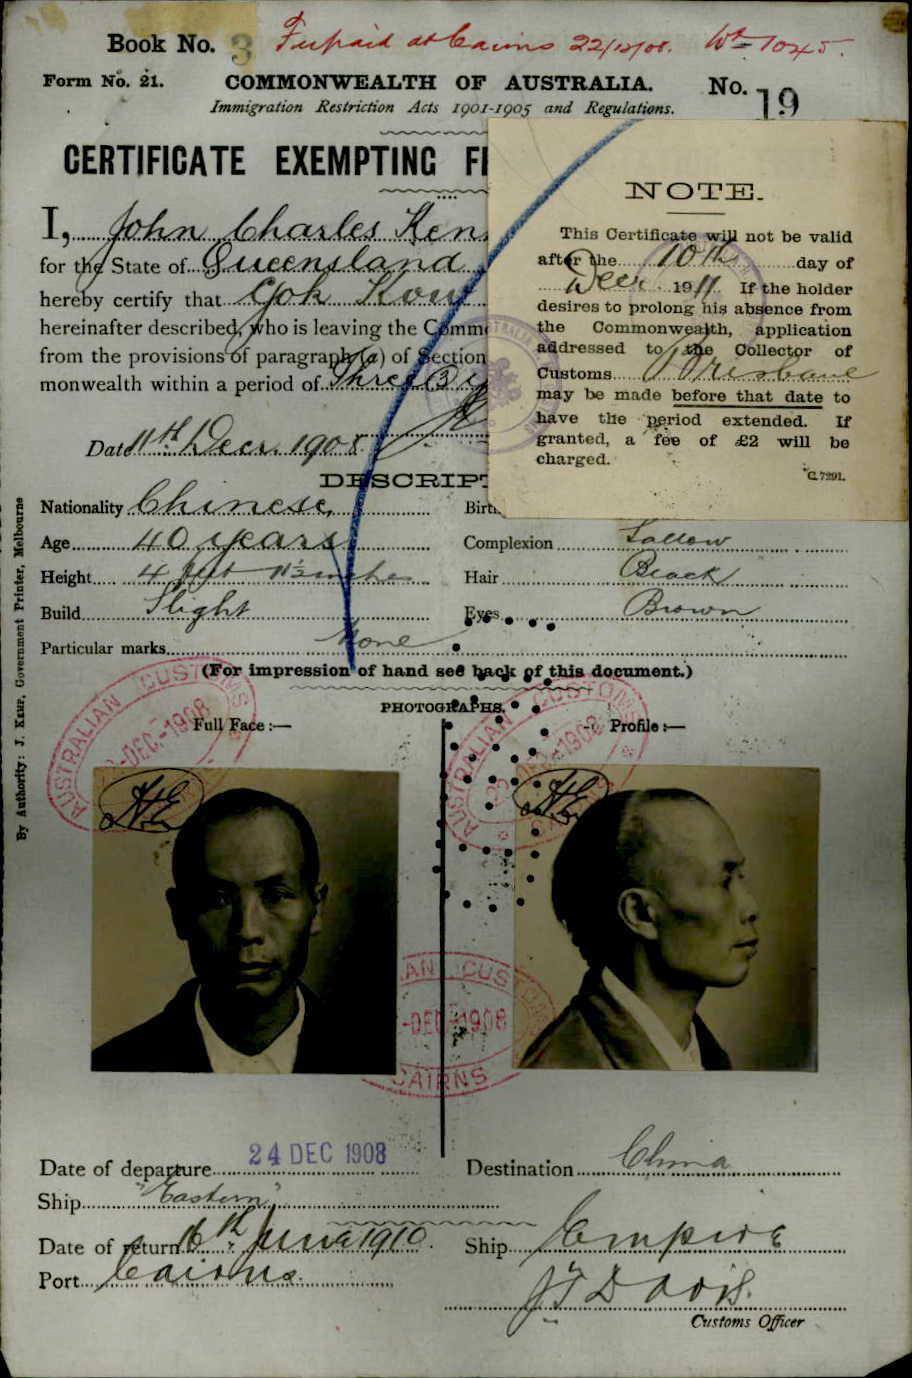 Book No. 3 Fee paid at Cairns 22/12/08. Wt= 1045.
Form No. 21. COMMONWEALTH OF AUSTRALIA. No. 19
Immigration Restriction Acts 1901-1905 and Regulations.
CERTIFICATE EXEMPTING
I, John Charles Ken
for the State of Queensland
hereby certify that Goh Kow
hereinafter described, who is leaving the Comm
from the provisions of paragraph (a) of Section
monwealth within a period of Three (3) y
Date 11th Decr. 1908
DESCRIPT
NOTE.
This Certificate will not be valid
after the 10th day of
Decr. 1911 If the holder
desires to prolong his absence from
the Commonwealth, application
addressed to the Collector of
Customs Brisbane
may be made before that date to
have the period extended. If
granted, a fee of £2 will be
charged.
C.7291.
Nationality Chinese. Birth
Age 40 years Complexion Sallow
Height 4 feet 11½ inches Hair Black
Build Slight Eyes Brown
Particular marks None
(For impression of hand see back of this document.)
PHOTOGRAPHS.
Full Face :— Profile :—
AUSTRALIAN CUSTOMS
DEC-1908
AUSTRALIAN CUSTOMS
1908
AN CUSTOMS
-DEC-1908
CAIRNS
By Authority: J. Kemp, Government Printer, Melbourne
Date of departure 24 DEC 1908 Destination China
Ship "Eastern"
Date of return 16th June 1910. Ship Empire
Port Cairns.
J T Davis.
Customs Officer